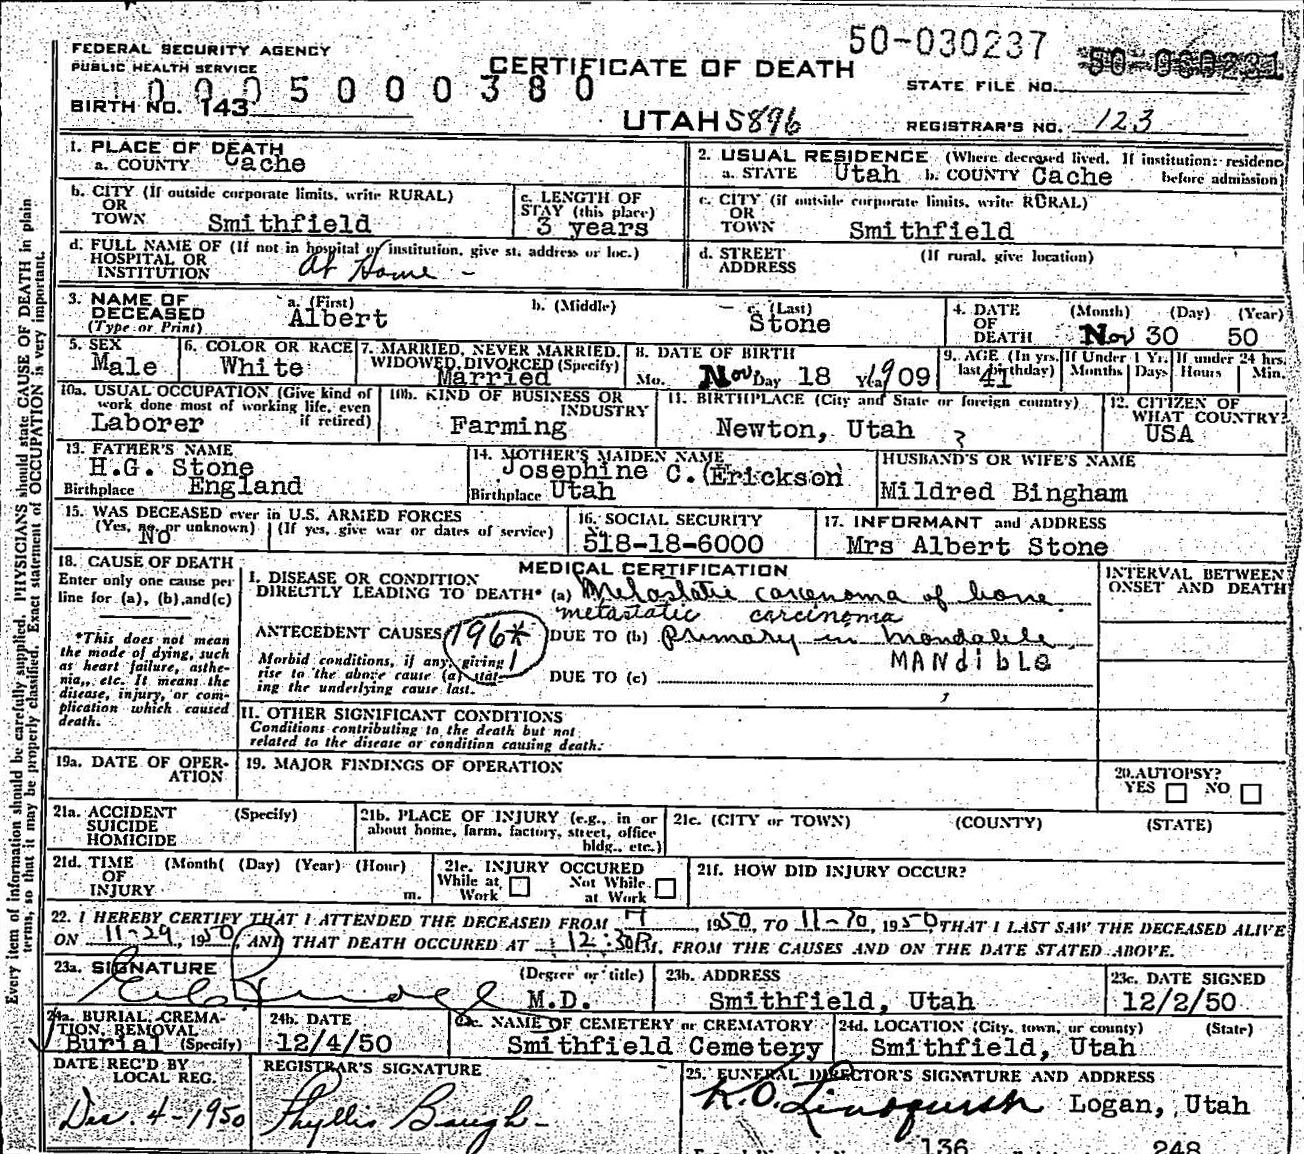 50-030237
FEDERAL SECURITY AGENCY
PUBLIC HEALTH SERVICE
CERTIFICATE OF DEATH
STATE FILE NO.
1 0 0 0 5 0 0 0 3 8 0
BIRTH NO. 143
UTAH 5896
REGISTRAR'S NO. 123
1. PLACE OF DEATH
a. COUNTY Cache
2. USUAL RESIDENCE (Where deceased lived. If institution: residence before admission)
a. STATE Utah b. COUNTY Cache
b. CITY (If outside corporate limits, write RURAL)
OR
TOWN Smithfield
c. LENGTH OF
STAY (this place)
3 years
c. CITY (if outside corporate limits, write RURAL)
OR
TOWN Smithfield
d. FULL NAME OF (If not in hospital or institution, give st. address or loc.)
HOSPITAL OR
INSTITUTION At Home -
d. STREET
ADDRESS
(If rural, give location)
3. NAME OF
DECEASED
(Type or Print)
a. (First)
Albert
b. (Middle)
c. (Last)
Stone
4. DATE
OF
DEATH
(Month) (Day) (Year)
Nov 30 50
5. SEX
Male
6. COLOR OR RACE
White
7. MARRIED, NEVER MARRIED,
WIDOWED, DIVORCED (Specify)
Married
8. DATE OF BIRTH
Mo. Nov Day 18 Year 1909
9. AGE (In yrs.
last birthday)
41
If Under 1 Yr.
Months Days
If under 24 hrs.
Hours Min.
10a. USUAL OCCUPATION (Give kind of
work done most of working life, even
if retired)
Laborer
10b. KIND OF BUSINESS OR
INDUSTRY
Farming
11. BIRTHPLACE (City and State or foreign country)
Newton, Utah ?
12. CITIZEN OF
WHAT COUNTRY?
USA
13. FATHER'S NAME
H.G. Stone
Birthplace England
14. MOTHER'S MAIDEN NAME
Josephine C. (Erickson
Birthplace Utah
HUSBAND'S OR WIFE'S NAME
Mildred Bingham
15. WAS DECEASED ever in U.S. ARMED FORCES
(Yes, no, or unknown) (If yes, give war or dates of service)
No
16. SOCIAL SECURITY
518-18-6000
17. INFORMANT and ADDRESS
Mrs Albert Stone
18. CAUSE OF DEATH
Enter only one cause per
line for (a), (b), and (c)
*This does not mean
the mode of dying, such
as heart failure, asthe-
nia, etc. It means the
disease, injury, or com-
plication which caused
death.
MEDICAL CERTIFICATION
I. DISEASE OR CONDITION
DIRECTLY LEADING TO DEATH* (a) Metastatic carcenoma of bone
metastatic carcinoma
ANTECEDENT CAUSES DUE TO (b) primary in mondabile
196*
1
MANdibLe
Morbid conditions, if any, giving
rise to the above cause (a) stat-
ing the underlying cause last.
DUE TO (c)
II. OTHER SIGNIFICANT CONDITIONS
Conditions contributing to the death but not
related to the disease or condition causing death.
INTERVAL BETWEEN
ONSET AND DEATH
19a. DATE OF OPER-
ATION
19. MAJOR FINDINGS OF OPERATION
20. AUTOPSY?
YES NO
21a. ACCIDENT
SUICIDE
HOMICIDE
(Specify)
21b. PLACE OF INJURY (e.g., in or
about home, farm, factory, street, office
bldg., etc.)
21c. (CITY or TOWN) (COUNTY) (STATE)
21d. TIME
OF
INJURY
(Month( (Day) (Year) (Hour)
m.
21e. INJURY OCCURED
While at Work Not While at Work
21f. HOW DID INJURY OCCUR?
22. I HEREBY CERTIFY THAT I ATTENDED THE DECEASED FROM 1950, TO 1950 THAT I LAST SAW THE DECEASED ALIVE
ON 11-29, 1950, AND THAT DEATH OCCURED AT 12:30P M, FROM THE CAUSES AND ON THE DATE STATED ABOVE.
23a. SIGNATURE
(Degree or title)
M.D.
23b. ADDRESS
Smithfield, Utah
23c. DATE SIGNED
12/2/50
24a. BURIAL, CREMA-
TION, REMOVAL
Burial (Specify)
24b. DATE
12/4/50
24c. NAME OF CEMETERY or CREMATORY
Smithfield Cemetery
24d. LOCATION (City, town, or county) (State)
Smithfield, Utah
DATE REC'D BY
LOCAL REG.
Dec. 4-1950
REGISTRAR'S SIGNATURE
Phyllis Baugh-
25. FUNERAL DIRECTOR'S SIGNATURE AND ADDRESS
K.O. Lindquist Logan, Utah
136 248
Every item of information should be carefully supplied. PHYSICIANS should state CAUSE OF DEATH in plain
terms, so that it may be properly classified. Exact statement of OCCUPATION is very important.